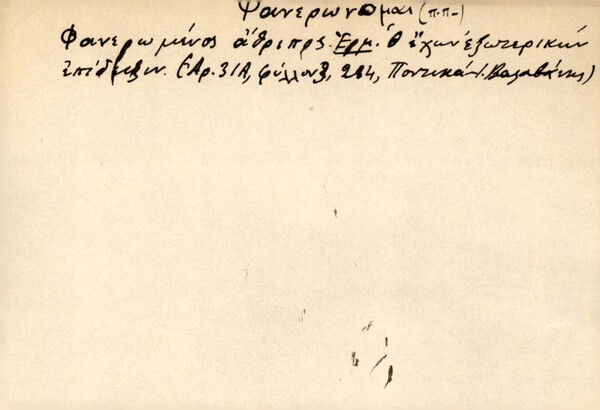 Φανερώνομαι (π.π-)
Φανερωμένος ἄθριπος. Ἑρμ. Ὁ ἔχων ἐξωτερικήν
ἐπίδειξιν. (Ἀρ. 31Α, φύλλον 284, Ποντικά Ι. Βαλαβάνης)